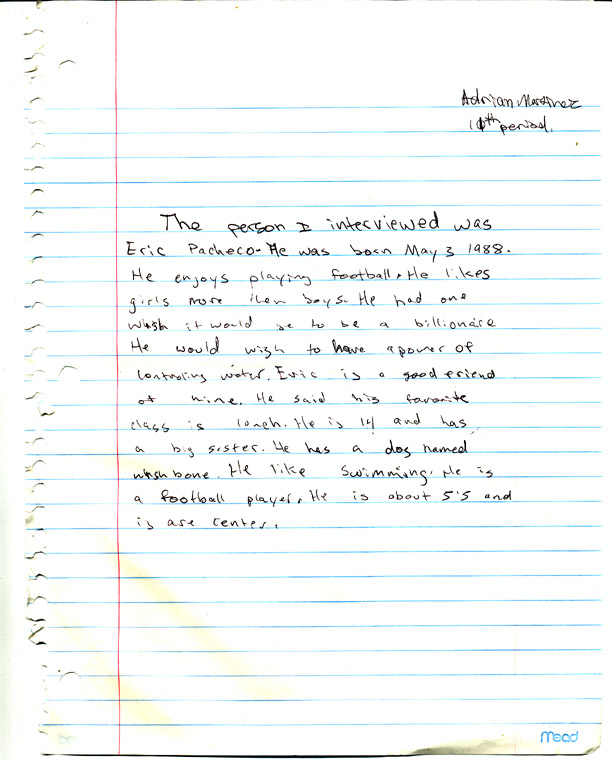 Adrian Martinez
10th period.
The person I interviewed was
Eric Pacheco. He was born May 3 1988.
He enjoys playing football. He likes
girls more then boys. He had one
wish it would be to be a billionare
He would wish to have a power of
controling water. Eric is a good friend
of mine. He said his favorite
class is lonch. He is 14 and has
a big sister. He has a dog named
wishbone. He like swimming. He is
a football player. He is about 5'5 and
is are center.
Mead